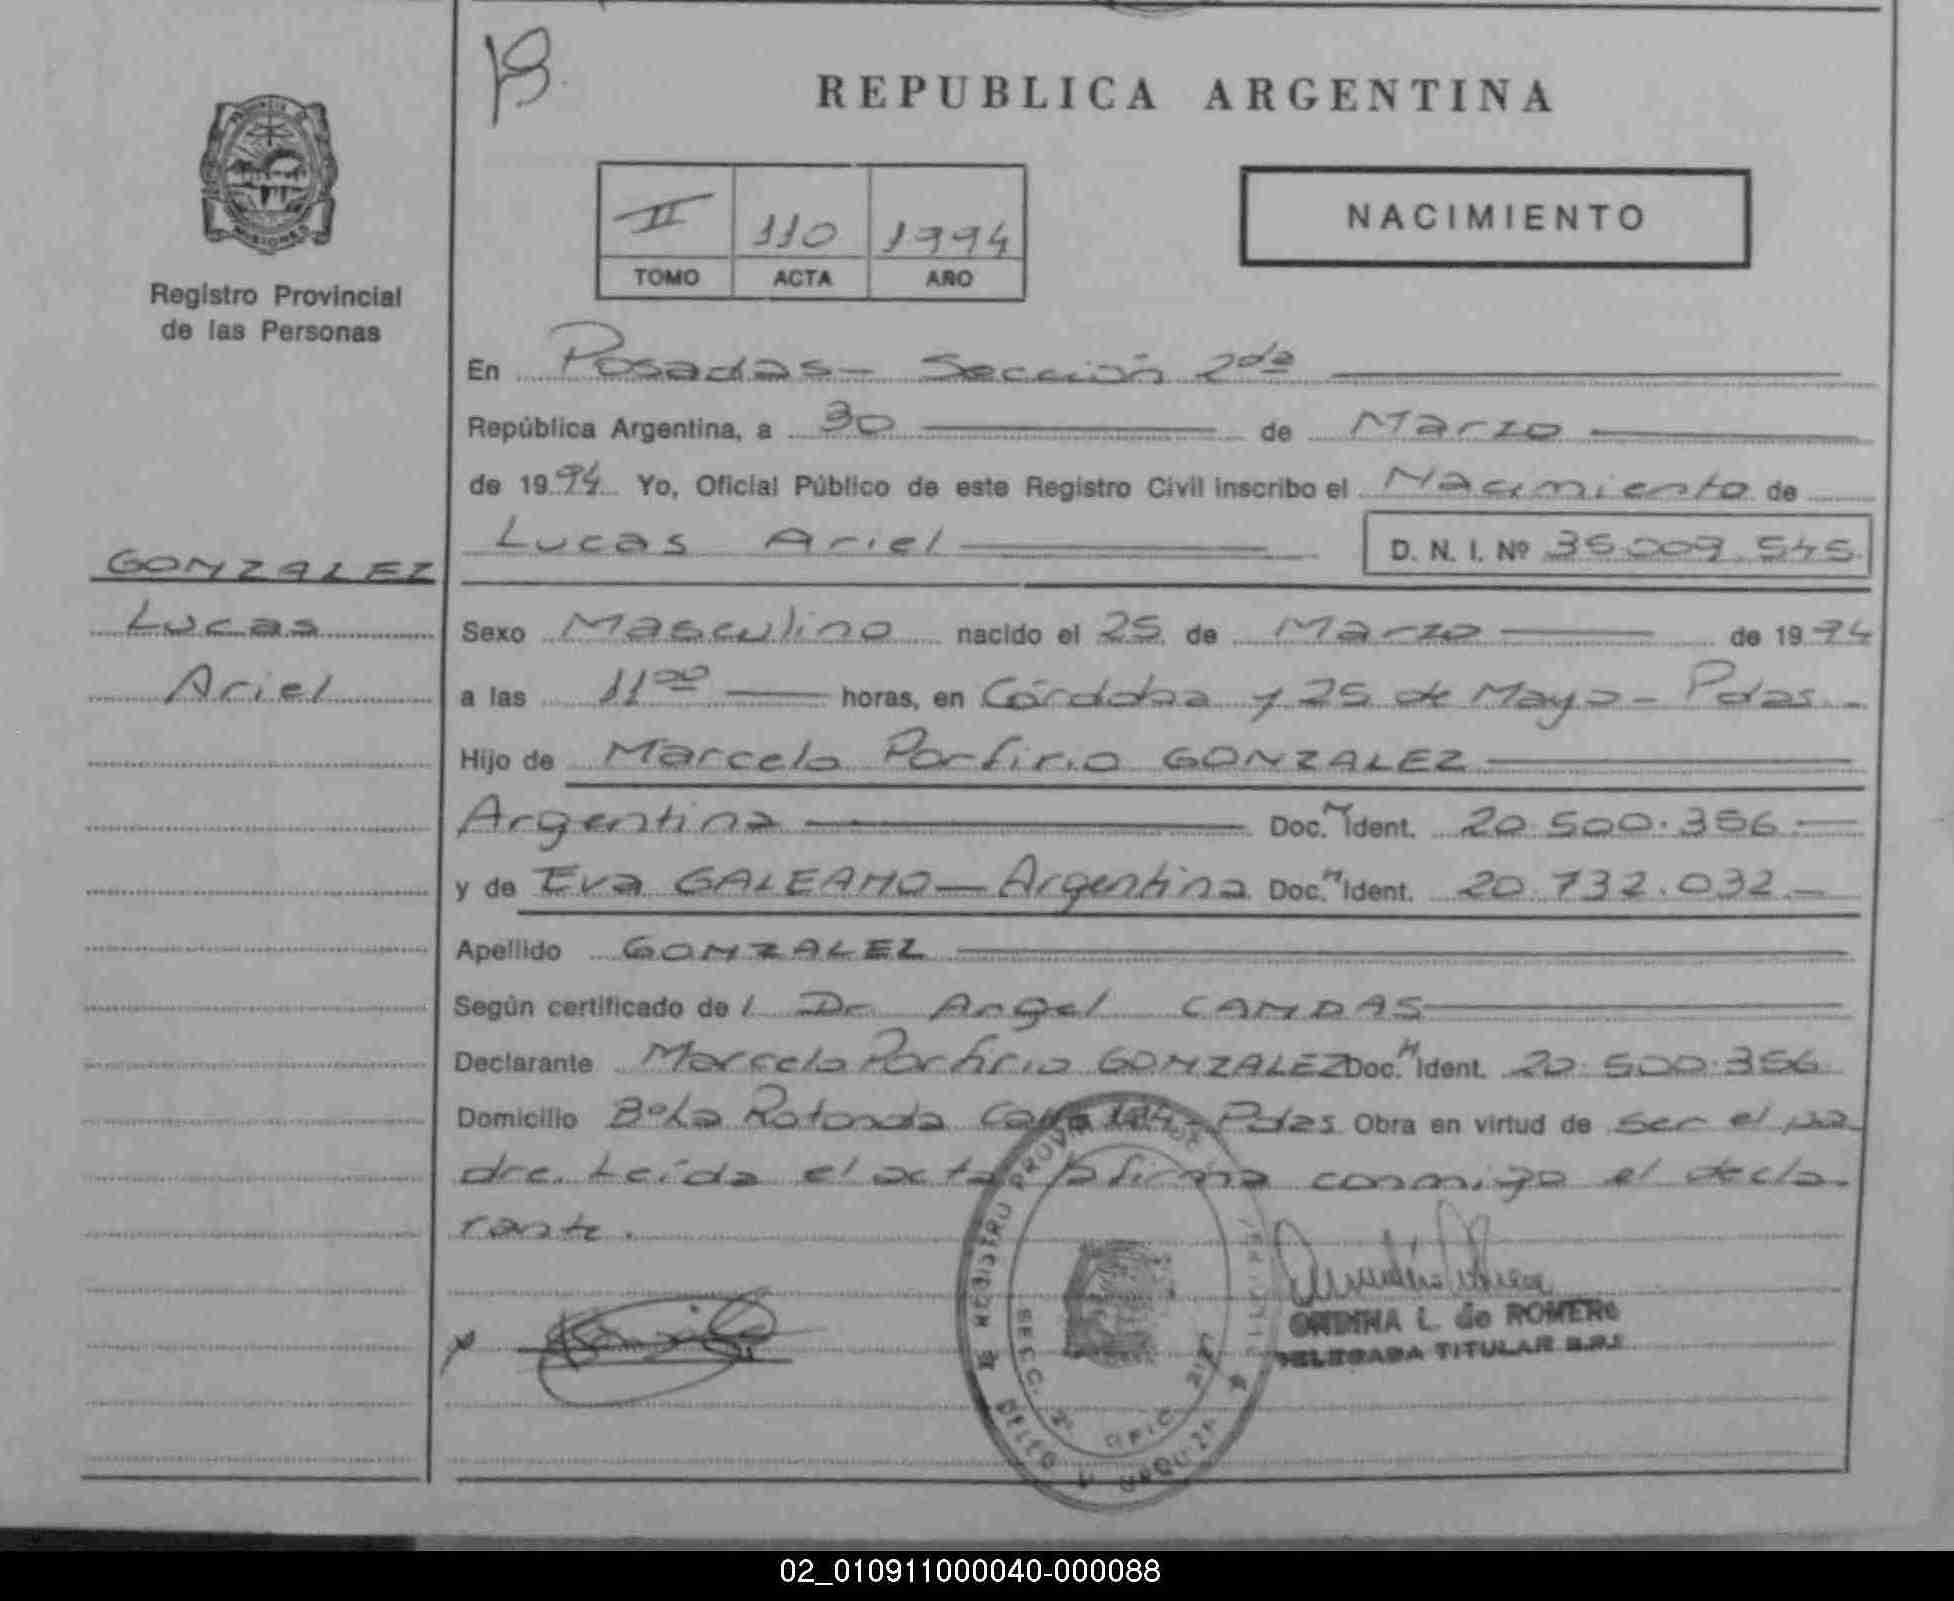 REPUBLICA ARGENTINA
II 110 1994
TOMO ACTA AÑO
NACIMIENTO
MISIONES
Registro Provincial
de las Personas
En Posadas - Sección 2da
República Argentina, a 30 de Marzo
de 1994 Yo, Oficial Público de este Registro Civil inscribo el Nacimiento de
Lucas Ariel D. N. I. Nº 35.009.545
GONZALEZ
Lucas
Ariel
Sexo Masculino nacido el 25 de Marzo de 1994
a las 11 00 horas, en Córdoba y 25 de Mayo - Pdas -
Hijo de Marcelo Porfirio GONZALEZ
Argentina Doc. N Ident. 20.500.356.-
y de Eva GALEANO - Argentina Doc. N Ident. 20.732.032.-
Apellido GONZALEZ
Según certificado de l Dr Angel CANDAS
Declarante Marcelo Porfirio GONZALEZ Doc. N Ident. 20.500.356
Domicilio Bº La Rotonda Casa - Pdas Obra en virtud de ser el pa
dre. Leída el acta la firma conmigo el decla-
rante.
REGISTRO
SECC. 2ª OFIC.
DELEG URQUIZA
L. de ROMERO
DELEGADA TITULAR
02_010911000040-000088